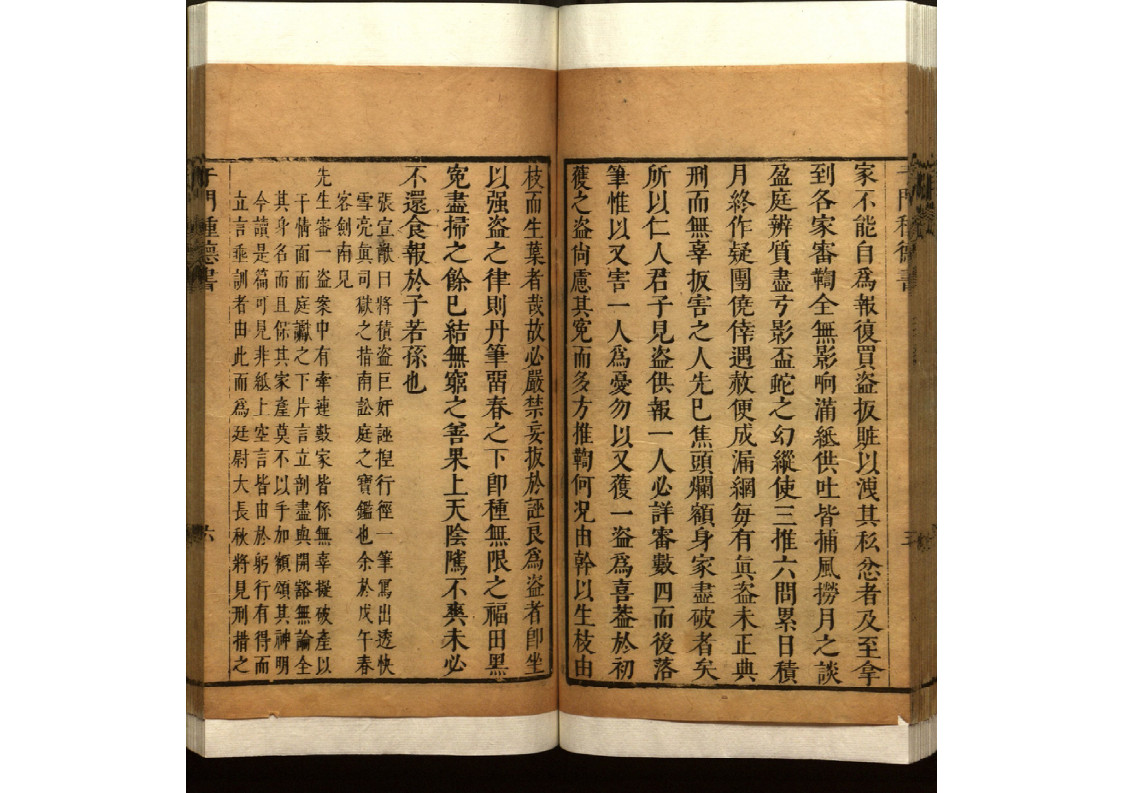 家不能自爲報復買盗扳賍以洩其私忿者及至拿
到各家審鞫全無影响滿紙供吐皆捕風撈月之談
盈庭辨質盡弓影盃蛇之幻縱使三推六問累日積
月終作疑團僥倖遇赦便成漏網毎有眞盗未正典
刑而無辜扳害之人先已焦頭爛額身家盡破者矣
所以仁人君子見盗供報一人必詳審數四而後落
筆惟以又害一人爲憂勿以又獲一盗爲喜葢於初
獲之盗尙慮其寃而多方推鞫何况由幹以生枝由
枝而生葉者哉故必嚴禁妄扳於誣良爲盗者卽坐
以强盗之律則丹筆畱春之下卽種無限之福田黑
寃盡掃之餘已結無窮之善果上天陰隲不爽未必
不還食報於子若孫也
張宣猷曰將積盗巨奸誣捏行徑一筆寫出透快
雪亮眞司獄之指南訟庭之寶鑑也余於戊午春
客劍南見
先生審一盗案中有牽連數家皆係無辜擬破產以
干情面而庭讞之下片言立剖盡與開豁無論全
其身名而且保其家產莫不以手加額頌其神明
今讀是篇可見非紙上空言皆由於躬行有得而
立言垂訓者由此而爲廷尉大長秋將見刑措之
于門種德書
六